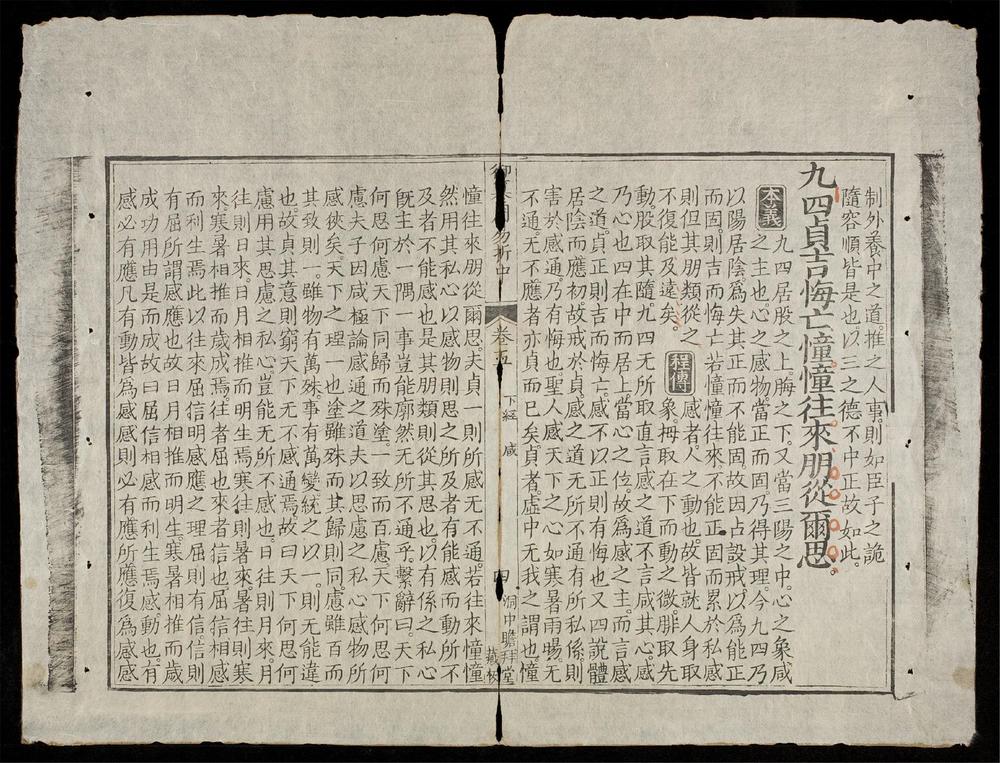 制外養中之道推之人事則如臣子之詭
隨容順皆是也以三之德不中正故如此
九四貞吉悔亡憧憧往來朋從爾思
本義
九四居股之上脢之下又當三陽之中心之象咸
之主也心之感物當正而固乃得其理今九四乃
以陽居陰爲失其正而不能固故因占設戒以爲能正
而固則吉而悔亡若憧憧往來不能正固而累於私感
則但其朋類從之
不復能及遠矣
程傳
感者人之動也故皆就人身取
象拇取在下而動之微腓取先
動股取其隨九四无所取直言感之道不言咸其心感
乃心也四在中而居上當心之位故爲感之主而言感
之道貞正則吉而悔亡感不以正則有悔也又四說體
居陰而應初故戒於貞感之道无所不通有所私係則
害於感通乃有悔也聖人感天下之心如寒暑雨暘无
不通无不應者亦貞而已矣貞者虛中无我之謂也憧
易折中
卷五
下經
咸
四
洞中瞻拜堂
藏板
憧往來朋從爾思夫貞一則所感无不通若往來憧憧
然用其私心以感物則思之所及者有能感而動所不
及者不能感也是其朋類則從其思也以有係之私心
旣主於一隅一事豈能廓然无所不通乎繫辭曰天下
何思何慮天下同歸而殊塗一致而百慮天下何思何
慮夫子因咸極論感通之道夫以思慮之私心感物所
感狹矣天下之理一也塗雖殊而其歸則同慮雖百而
其致則一雖物有萬殊事有萬變統之以一則无能違
也故貞其意則窮天下无不感通焉故曰天下何思何
慮用其思慮之私心豈能无所不感也日往則月來月
往則日來日月相推而明生焉寒往則暑來暑往則寒
來寒暑相推而歲成焉往者屈也來者信也屈信相感
而利生焉此以往來屈信明感應之理屈則有信信則
有屈所謂感應也故日月相推而明生寒暑相推而歲
成功用由是而成故曰屈信相感而利生焉感動也有
感必有應凡有動皆爲感感則必有應所應復爲感感